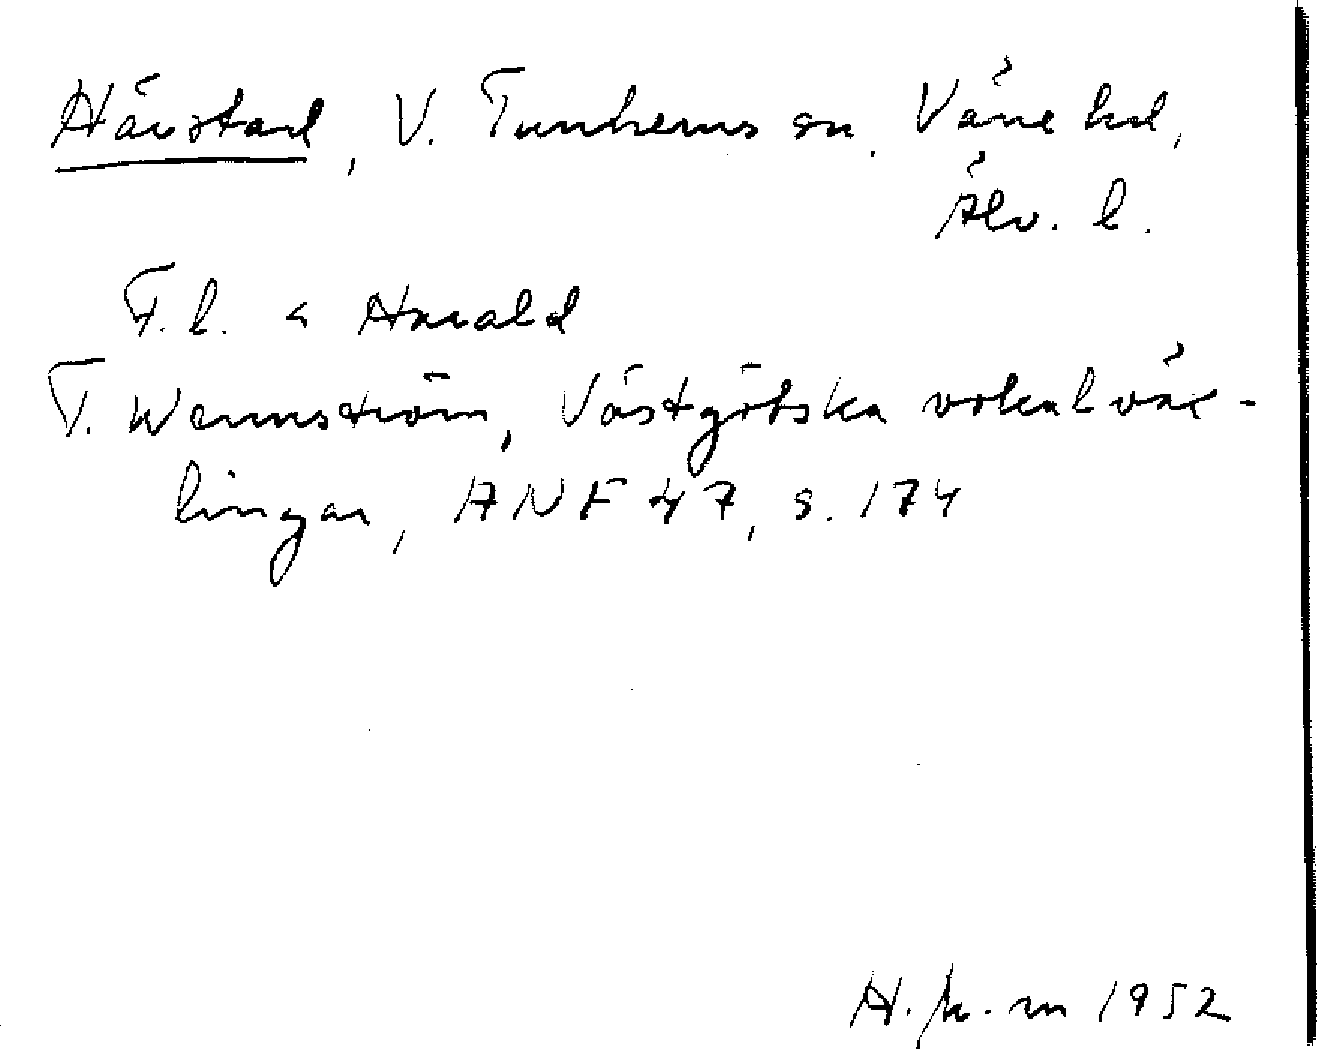 Härstad, V. Tunhems sn. Väne hd,
Älv. l.
F.l. < Harald
T. Wennström, Västgötska vokalväx-
lingar, ANF 47, s. 174
1952